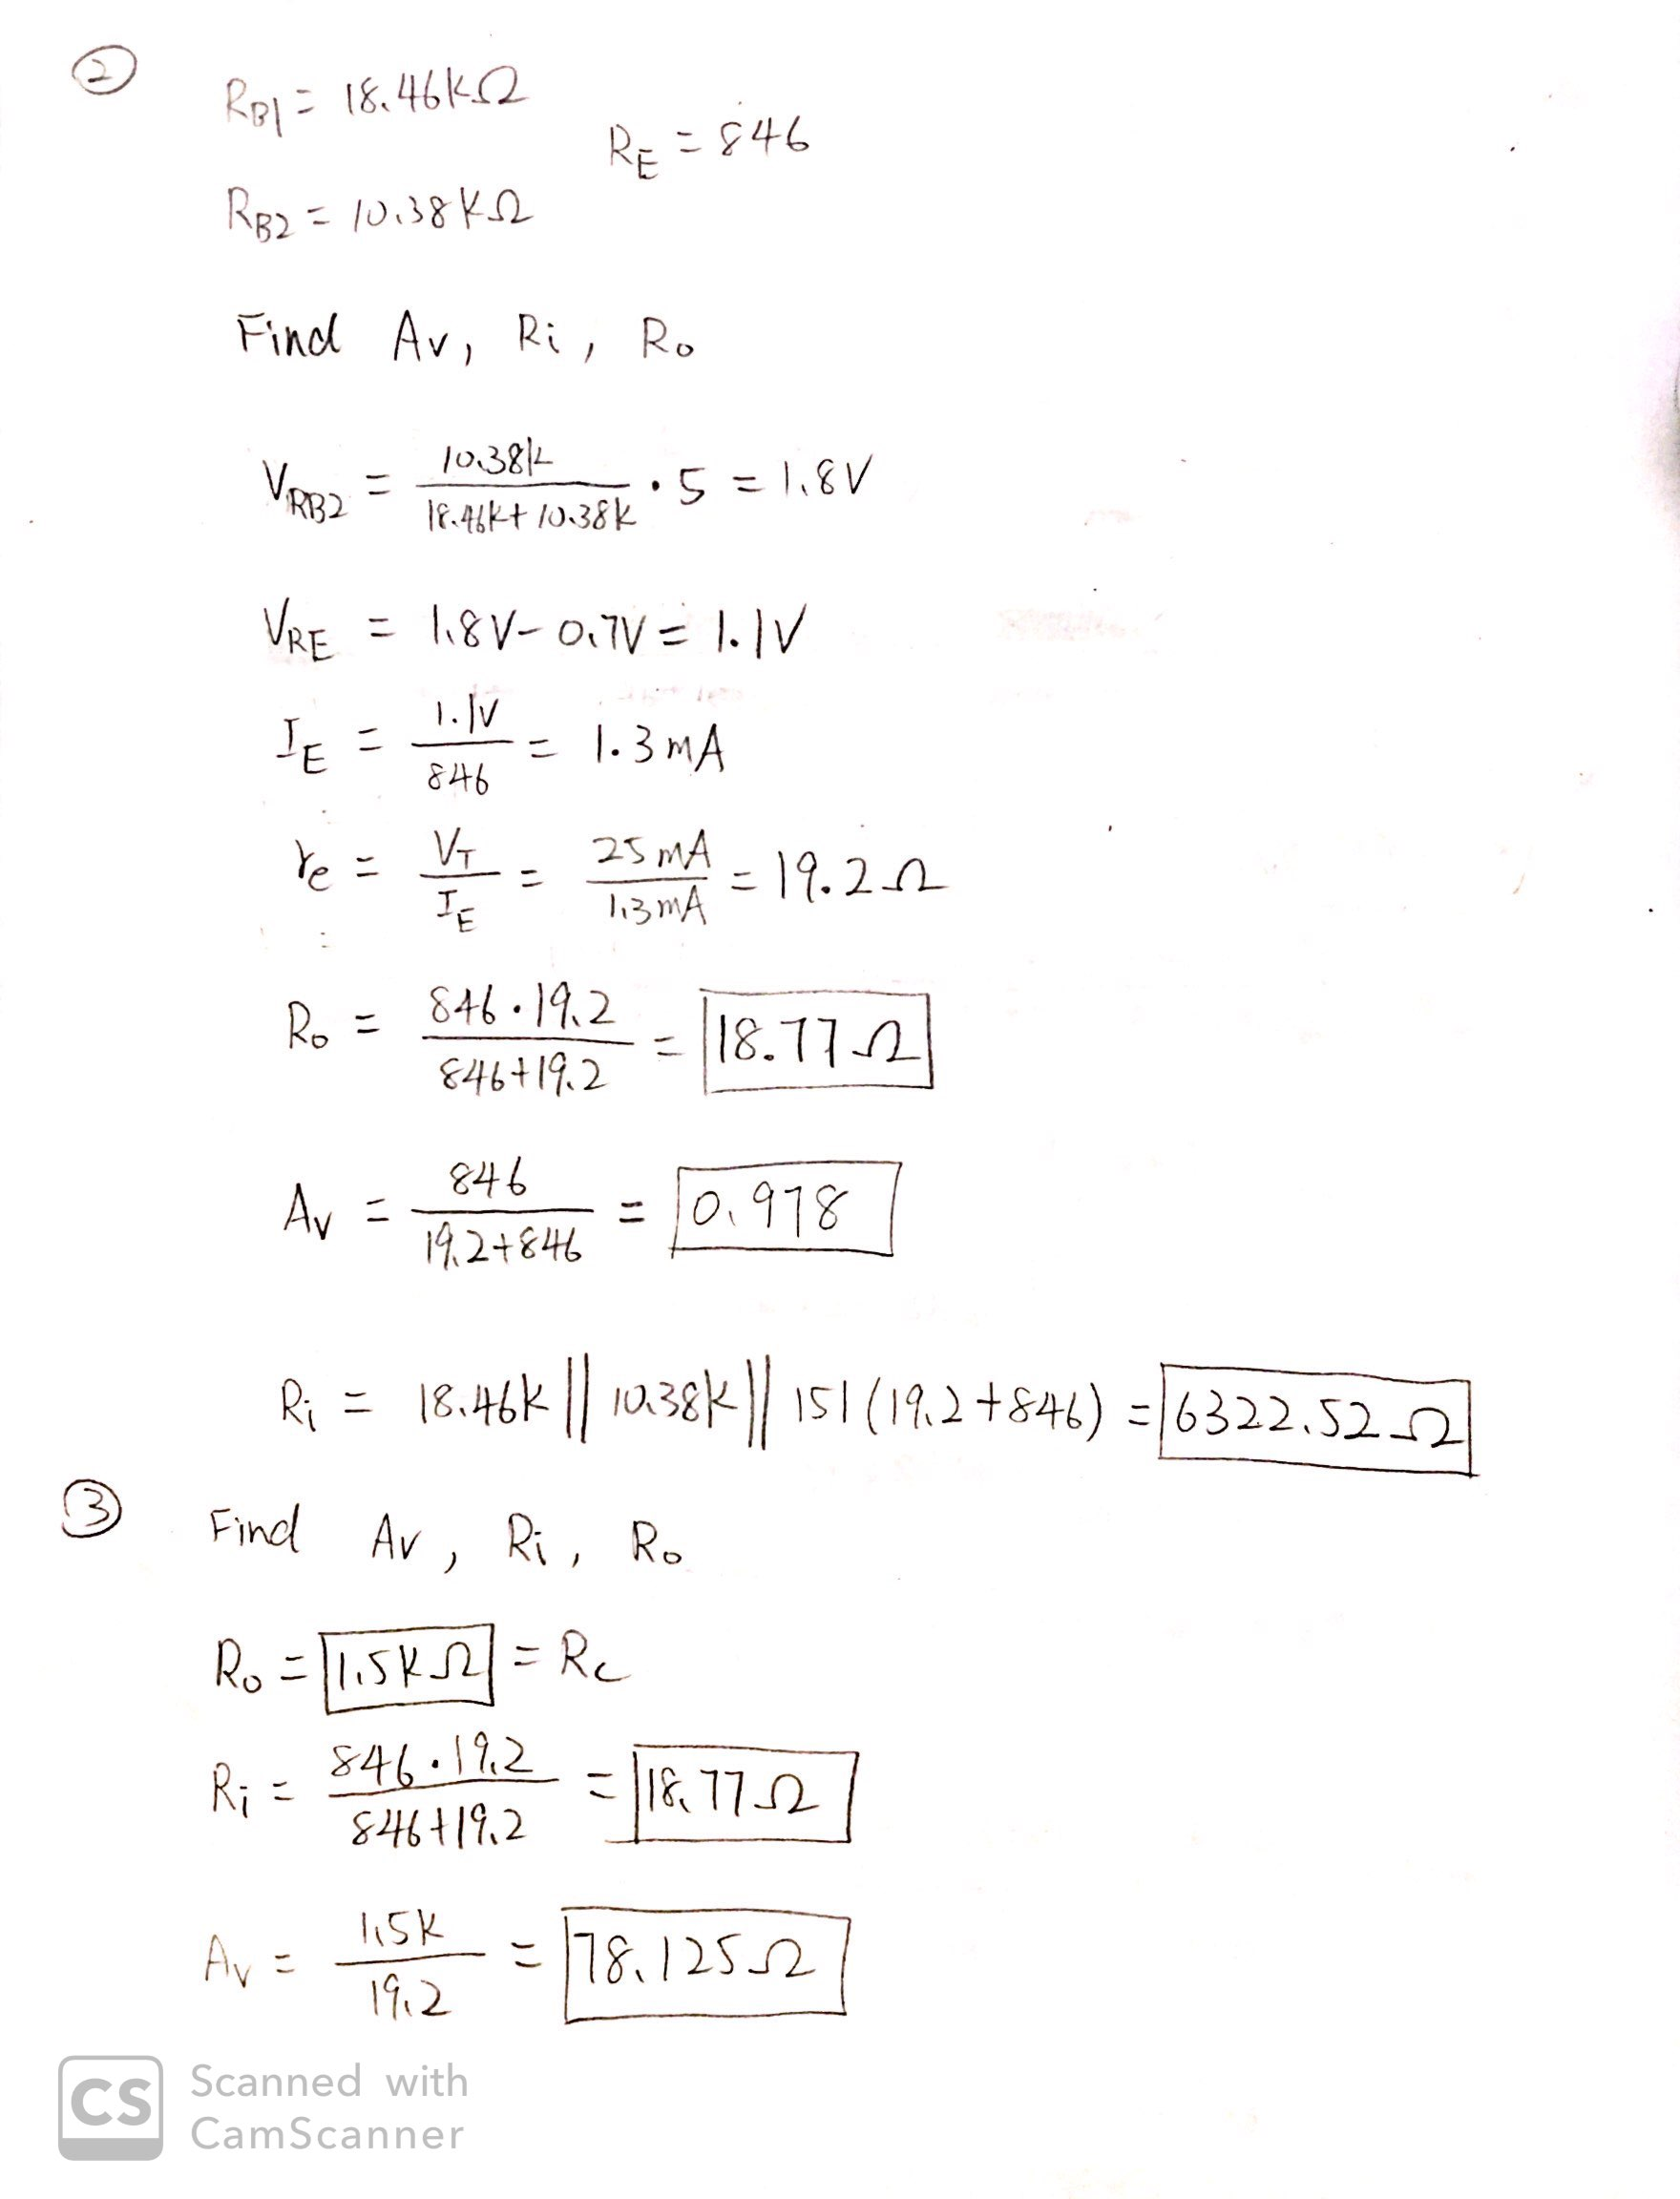 ②
RB1 = 18.46kΩ
RE = 846
RB2 = 10.38kΩ
Find Av, Ri, Ro
VRB2 = 10.38k / (18.46k + 10.38k) · 5 = 1.8V
VRE = 1.8V - 0.7V = 1.1V
IE = 1.1V / 846 = 1.3mA
re = VT / IE = 25mA / 1.3mA = 19.2Ω
Ro = 846 · 19.2 / (846 + 19.2) = 18.77Ω
Av = 846 / (19.2 + 846) = 0.978
Ri = 18.46k || 10.38k || 151 (19.2 + 846) = 6322.52Ω
③ Find Av, Ri, Ro
Ro = 1.5kΩ = Rc
Ri = 846 · 19.2 / (846 + 19.2) = 18.77Ω
Av = 1.5k / 19.2 = 78.125Ω
CS Scanned with
CamScanner